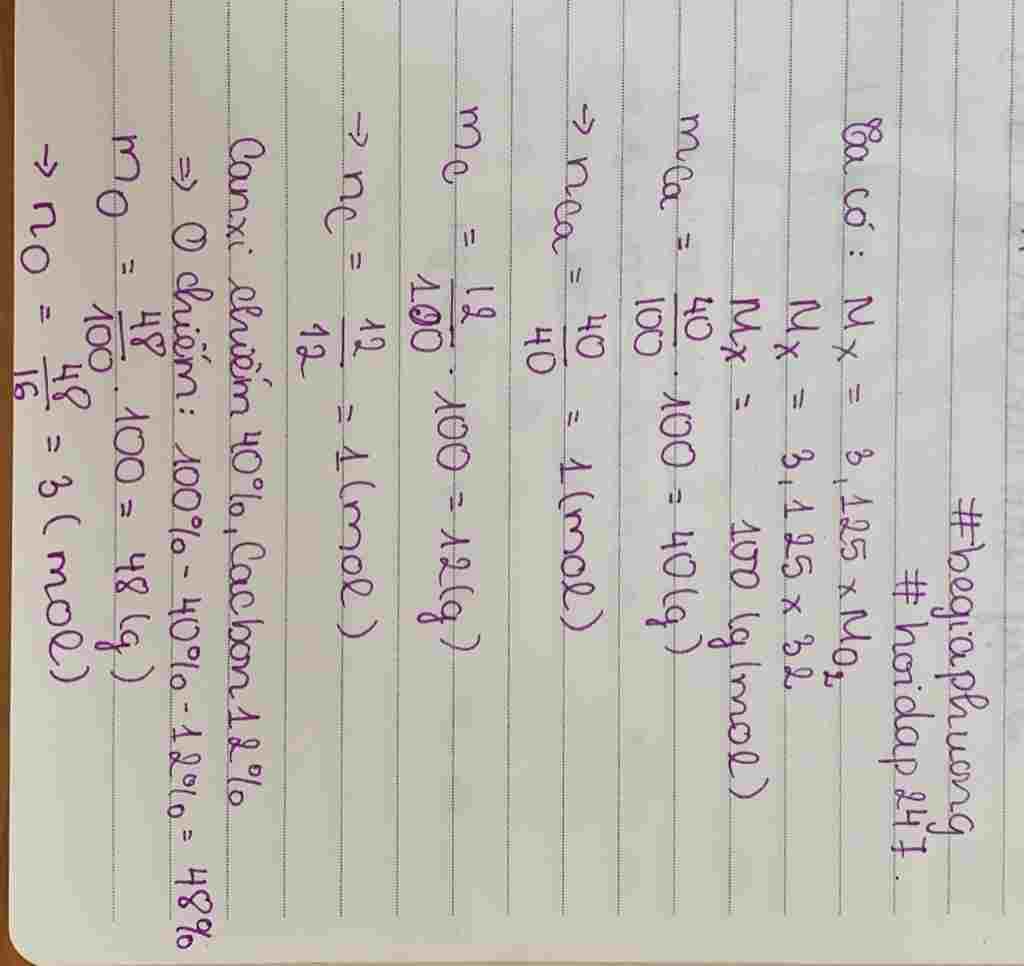 #begiaphuong
#hoidap247.
Ta có: Mx = 3,125 x MO₂
Mx = 3,125 x 32
Mx = 100 (g/mol)
mCa = 40/100 . 100 = 40(g)
→ nCa = 40/40 = 1(mol)
mC = 12/100 . 100 = 12(g)
→ nC = 12/12 = 1(mol)
Canxi chiếm 40%, Cacbon 12%
⇒ O chiếm: 100% - 40% - 12% = 48%
mO = 48/100 . 100 = 48(g)
→ nO = 48/16 = 3(mol)